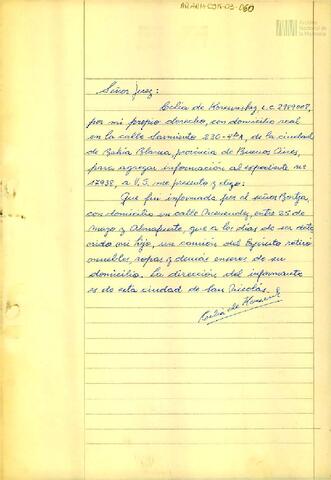 AR-AGN-CSR-03-060
Archivo
Nacional de
la Memoria
Señor Juez:
Celia de Korsunsky, L.C. 2989008,
por mi propio derecho, con domicilio real
en la calle Sarmiento 230-4ºA, de la ciudad
de Bahía Blanca provincia de Buenos Aires,
para agregar información al expediente nº
17938, a V.S. me presento y digo:
Que fui informada por el señor
con domicilio en calle entre 25 de
Mayo y Almafuerte, que a los días de ser dete
nido mi hijo, un camión del Ejército retiró
muebles, ropas y demás enseres de su
domicilio. La dirección del informante
es de esta ciudad de San Nicolás.
Celia de